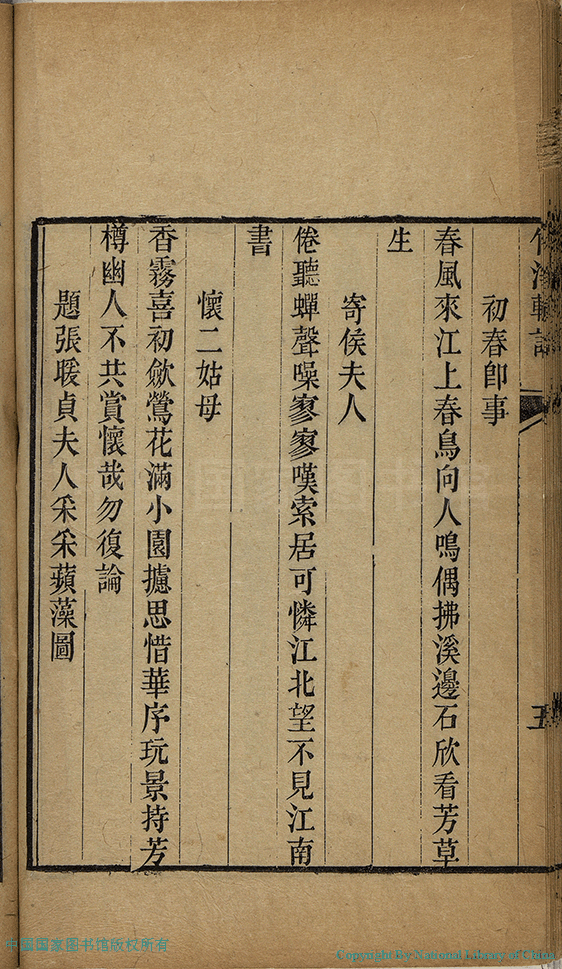 初春卽事
春風來江上春鳥向人鳴偶拂溪邊石欣看芳草
生
寄侯夫人
倦聽蟬聲噪寥寥嘆索居可憐江北望不見江南
書
懷二姑母
香霧喜初斂鶯花滿小園攄思惜華序玩景持芳
樽幽人不共賞懷哉勿復論
題張暖貞夫人采采蘋藻圖
中国国家图书馆版权所有
Copyright By National Library of China